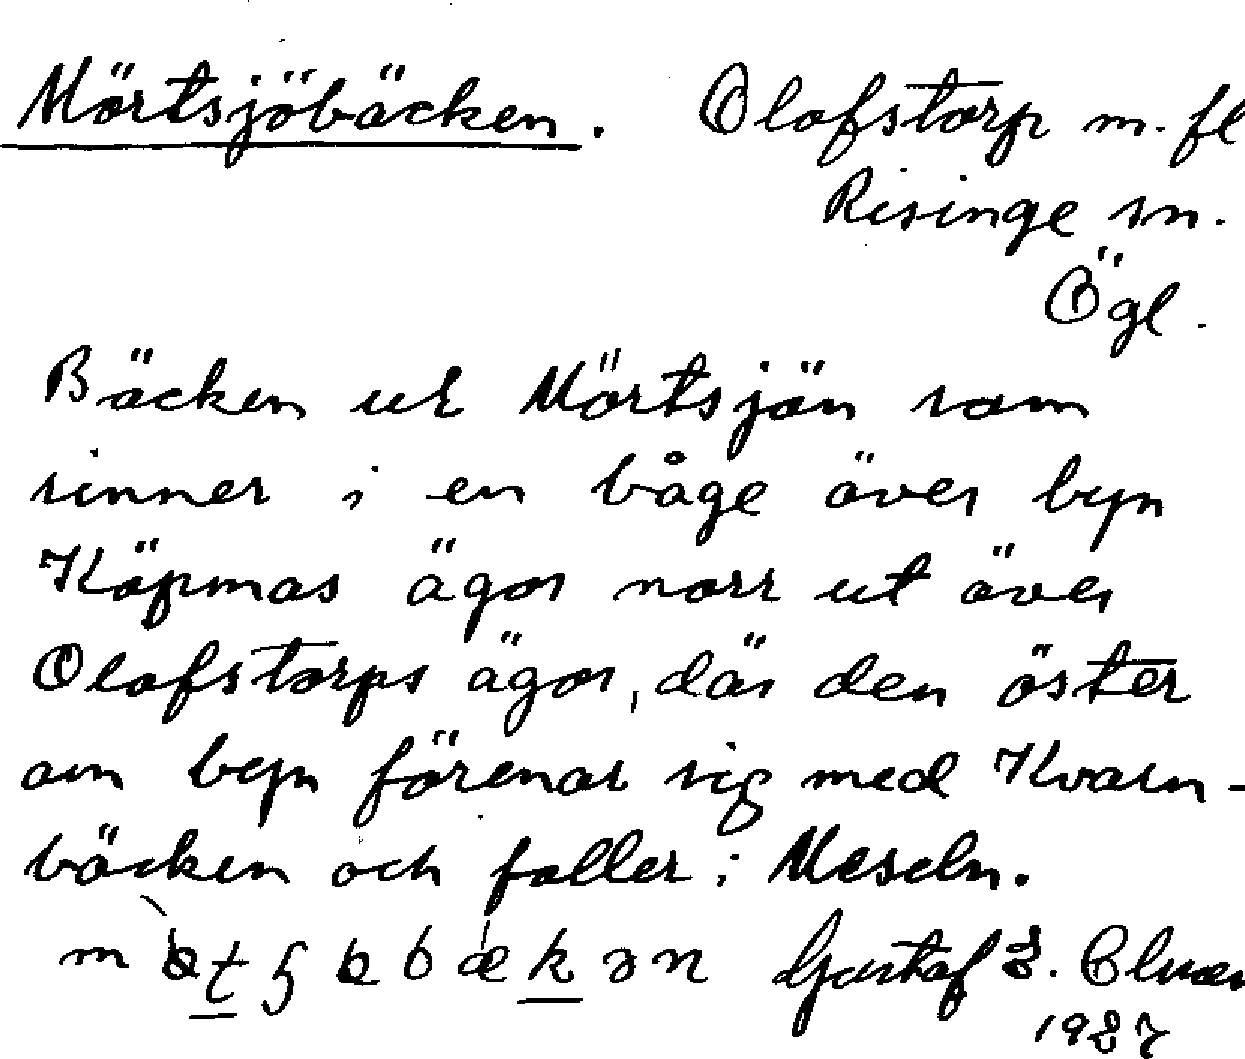 Mörtsjöbäcken. Olofstorp m. fl
Risinge sn.
Ögl.
Bäcken ur Mörtsjön som
rinner i en båge över byn
Köpmas ägor norr ut över
Olofstorps ägor, där den öster
om byn förenar sig med Kvarn-
bäcken och faller i Meseln.
Gustaf
1927